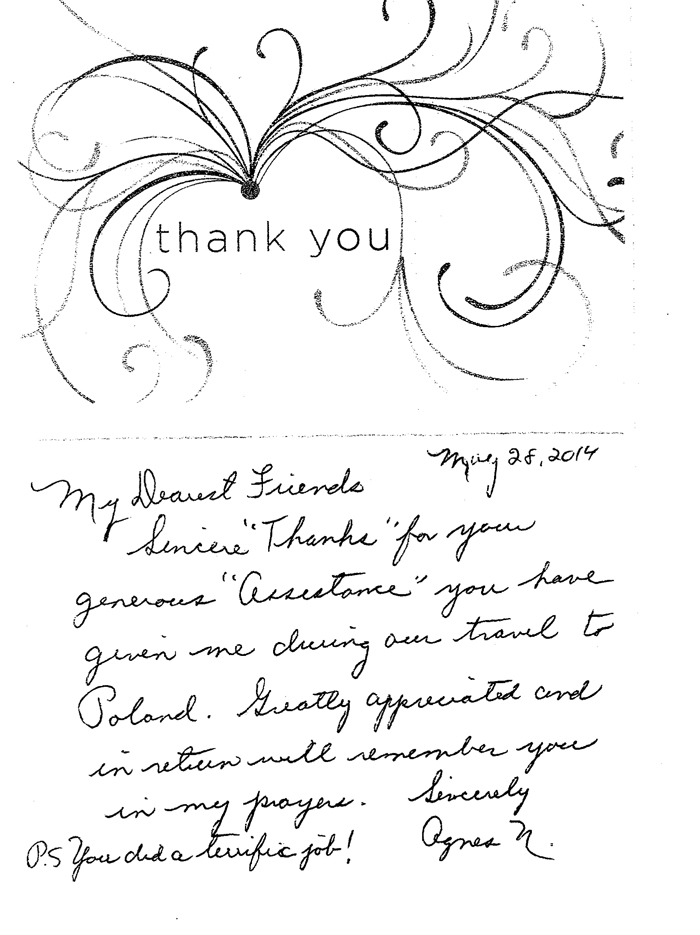 thank you
May 28, 2014
My Dearest Friends
Sincere "Thanks" for your
generous "Assistance" you have
given me during our travel to
Poland. Greatly appreciated and
in return will remember you
in my prayers. Sincerely
P.S You did a terrific job! Agnes N.